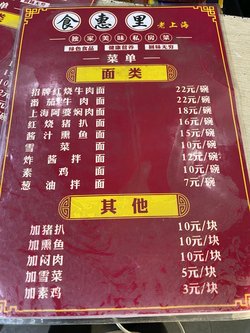 食惠里 老上海
独家美味私房菜
绿色食品 健康营养 回味无穷
菜单
面类
招牌红烧牛肉面 22元/碗
番茄牛肉面 22元/碗
上海阿婆焖肉面 18元/碗
红烧猪扒面 18元/碗
酱汁熏鱼面 15元/碗
雪菜面 10元/碗
炸酱拌面 12元/碗
素鸡面 10元/碗
葱油拌面 7元/碗
其他
加猪扒 10元/块
加熏鱼 10元/块
加焖肉 10元/块
加雪菜 5元/块
加素鸡 3元/块